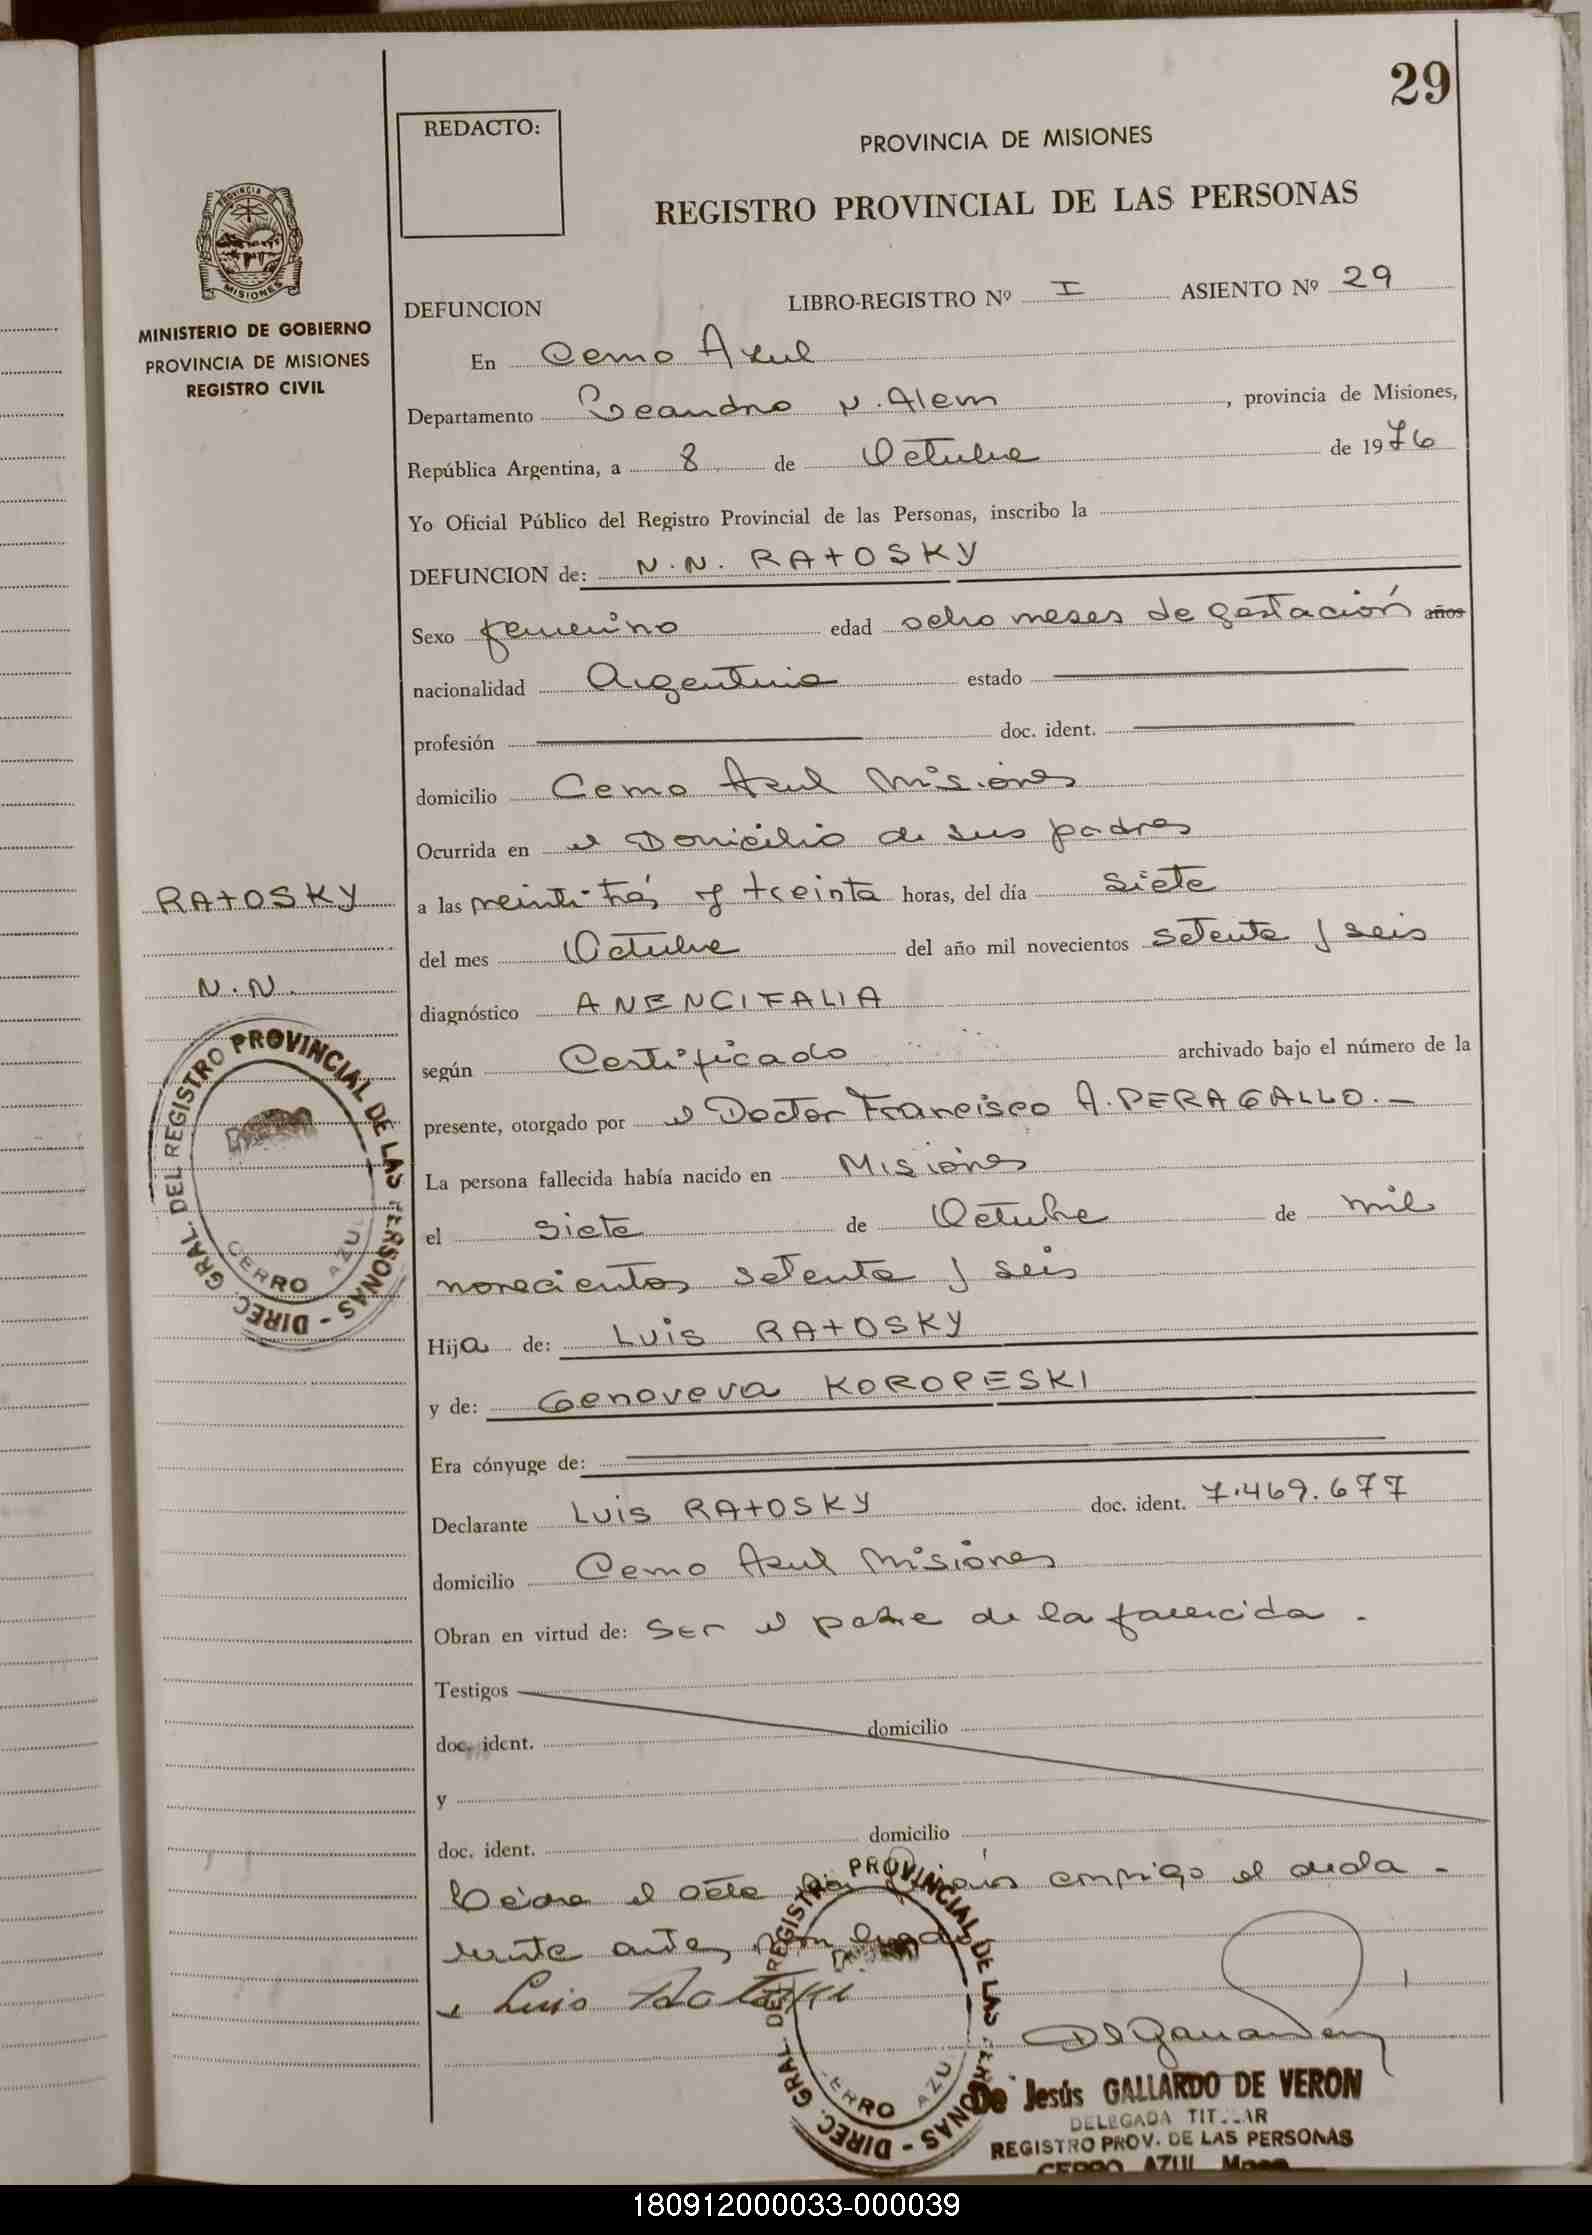 29
REDACTO:
PROVINCIA DE MISIONES
REGISTRO PROVINCIAL DE LAS PERSONAS
PROVINCIA DE
MISIONES
MINISTERIO DE GOBIERNO
PROVINCIA DE MISIONES
REGISTRO CIVIL
DEFUNCION LIBRO-REGISTRO Nº I ASIENTO Nº 29
En Cerro Azul
Departamento Leandro N. Alem, provincia de Misiones,
República Argentina, a 8 de Octubre de 1976
Yo Oficial Público del Registro Provincial de las Personas, inscribo la
DEFUNCION de: N.N. RATOSKY
Sexo femenino edad ocho meses de gestación años
nacionalidad Argentina estado
profesión doc. ident.
domicilio Cerro Azul Misiones
Ocurrida en el Domicilio de sus padres
RATOSKY
a las veinti trés y treinta horas, del día siete
del mes Octubre del año mil novecientos setenta y seis
N.N.
diagnóstico ANENCIFALIA
según Certificado archivado bajo el número de la
presente, otorgado por el Doctor Francisco A. PERAGALLO.-
La persona fallecida había nacido en Misiones
el siete de Octubre de mil
novecientos setenta y seis
DIREC. GRAL. DEL REGISTRO PROVINCIAL DE LAS PERSONAS -
CERRO AZUL
Hija de: LUIS RATOSKY
y de: Genoveva KOROPESKI
Era cónyuge de:
Declarante LUIS RATOSKY doc. ident. 7.469.677
domicilio Cerro Azul Misiones
Obran en virtud de: Ser el padre de la fallecida.
Testigos
doc. ident. domicilio
y
doc. ident. domicilio
Leída el acta conmigo el decla-
rante ante,
Luis
DIREC. GRAL. DEL REGISTRO PROVINCIAL DE LAS PERSONAS -
CERRO AZUL
De Jesús GALLARDO DE VERON
DELEGADA TITULAR
REGISTRO PROV. DE LAS PERSONAS
CERRO AZUL
180912000033-000039